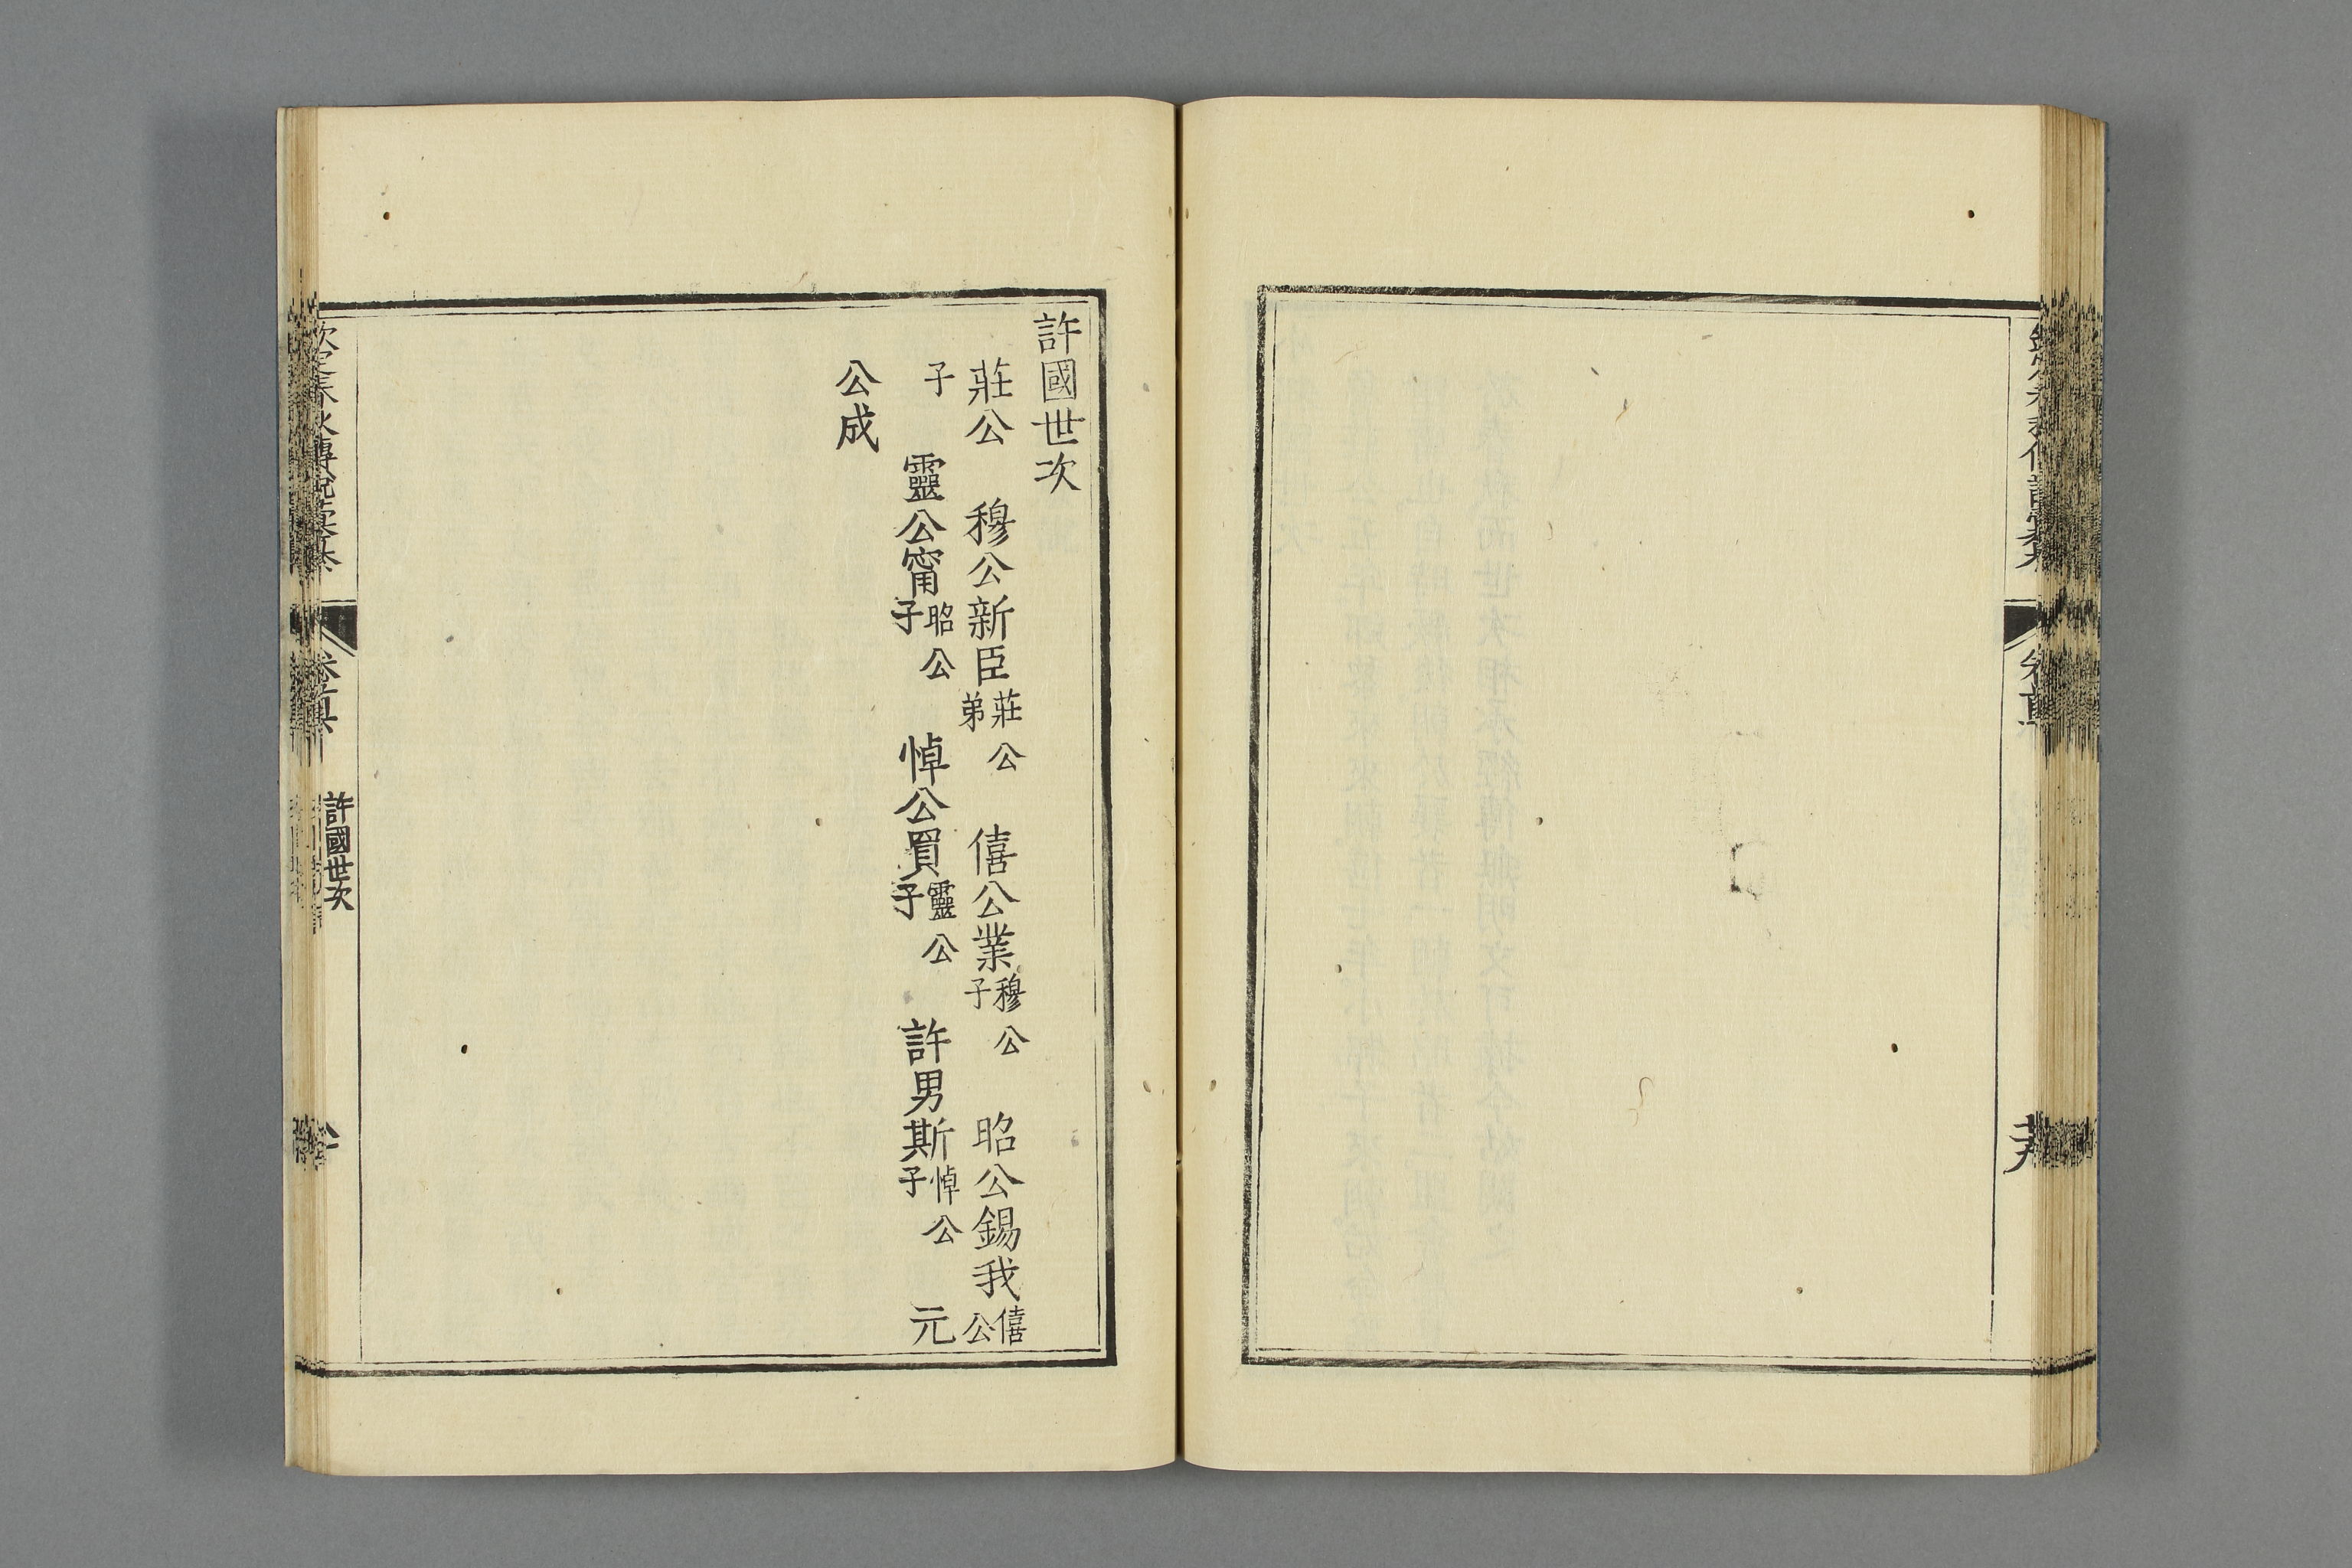 許國世次
莊公　穆公新臣莊公弟　僖公業穆公子　昭公錫我僖公
子　靈公甯昭公子　悼公買靈公子　許男斯悼公子　元
公成
許國世次